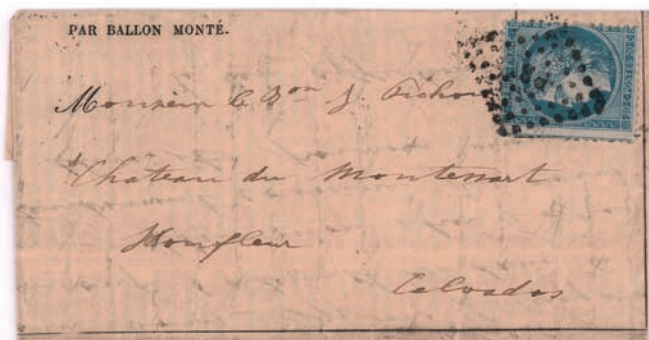 PAR BALLON MONTÉ.
Monsieur le Bon J. Pichon
Château du Montessart
Honfleur
Calvados